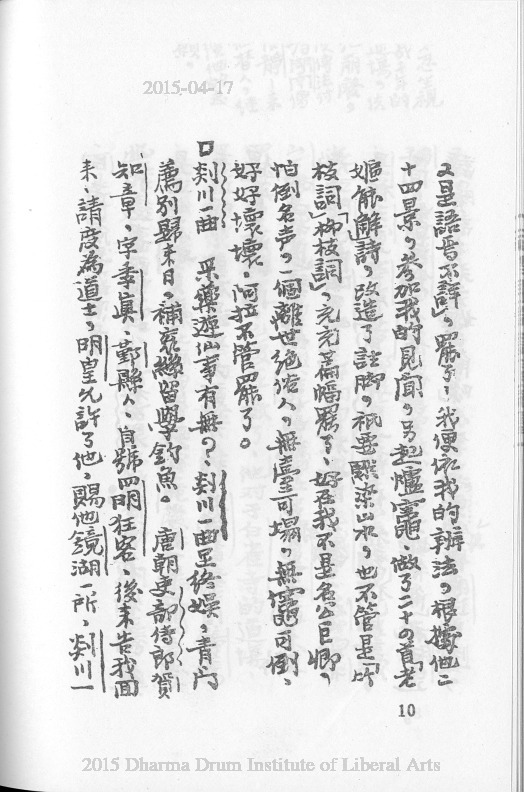 2015-04-17
又是語焉不詳」，罷了，我便依我的辦法，根據他二
十四景，參加我的見聞，另起爐竈，做了二十四首「老
嫗能解詩」，改造了註腳，祇要關梁山水，也不管是「竹
枝詞」「柳枝詞」，充充篇幅罷了，好在我不是名公巨卿，
怕倒名声，一個離世絕俗人，無臺可塌，無竈可倒，
好好壞壞，阿拉不管罷了。
口剡川一曲 采藥遊仙事有無？，剡川一曲足格娛，青門
薦別歸來日，補衣絲留學釣魚。 唐朝吏部侍郎賀
知章，字季真，鄞縣人，自號四明狂客，後來告我回
來，請度為道士，明皇允許了他，賜他鏡湖一所，剡川一
10
2015 Dharma Drum Institute of Liberal Arts